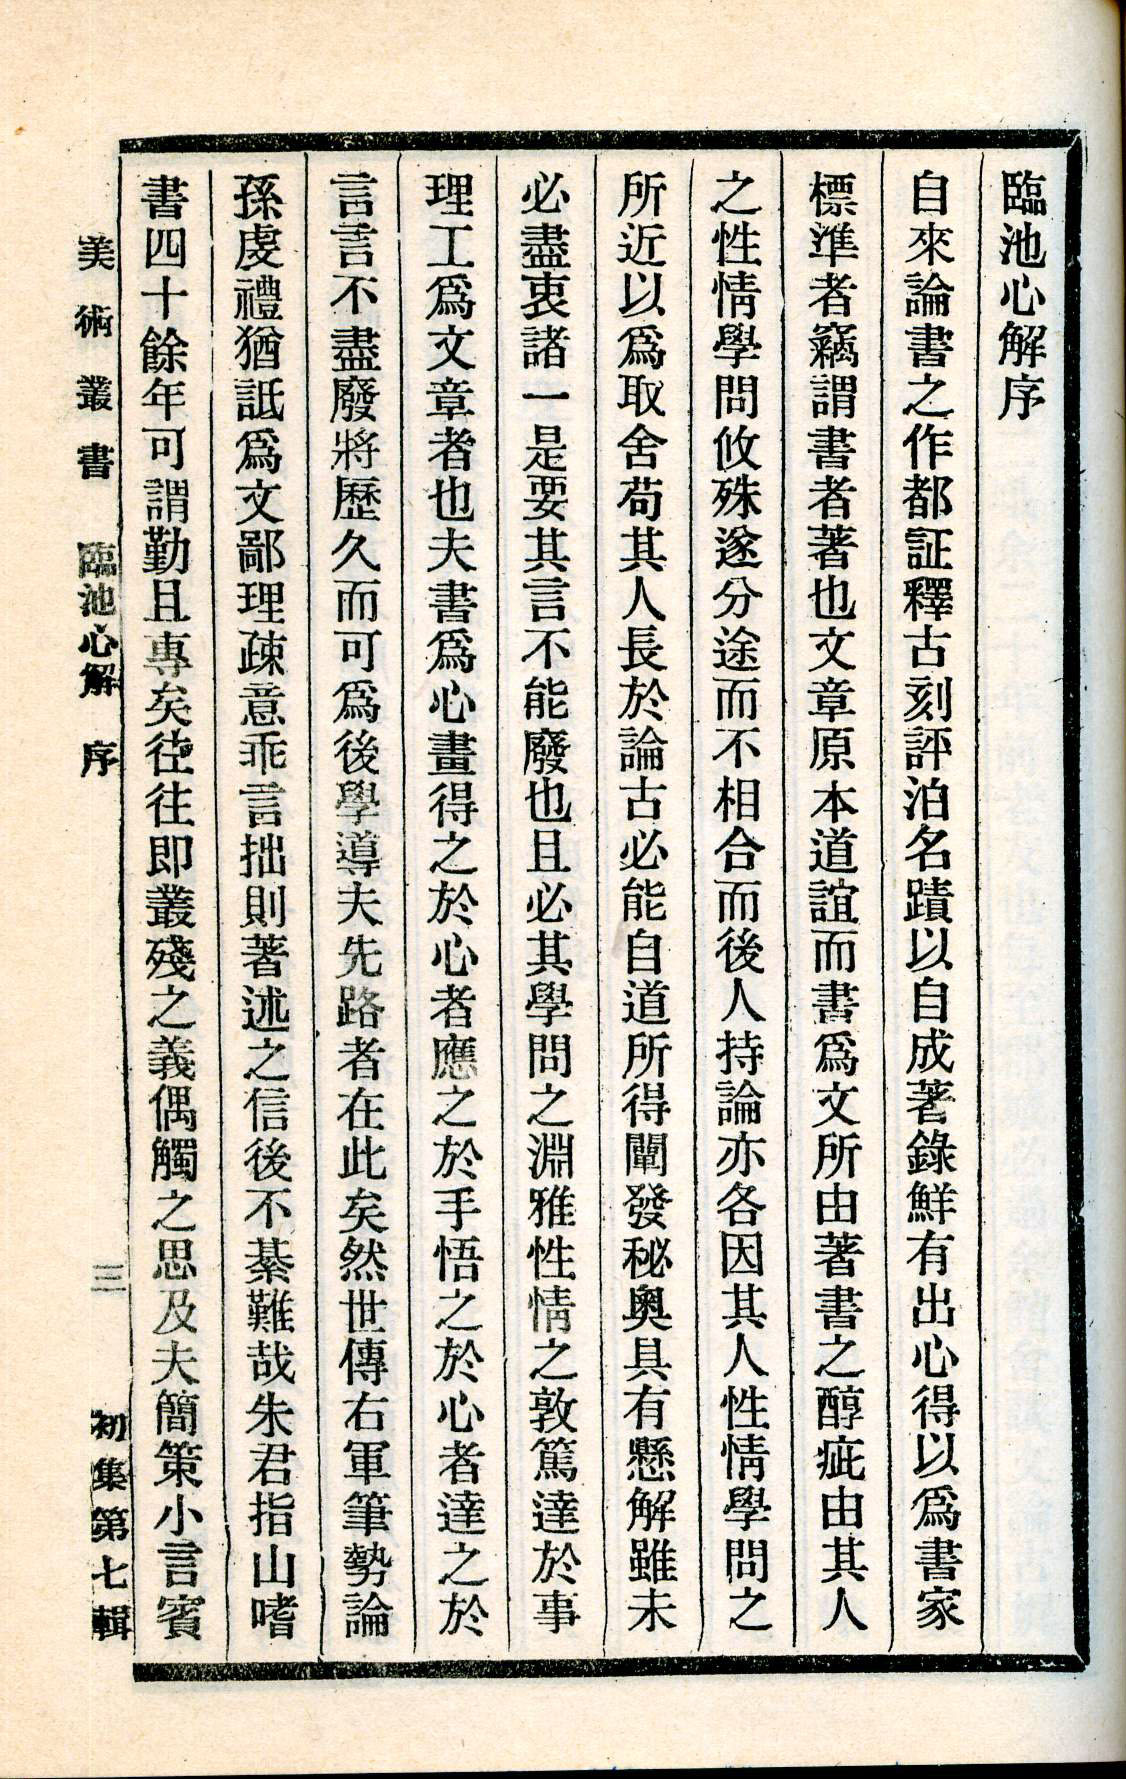 臨池心解序
自來論書之作都証釋古刻評泊名蹟以自成著錄鮮有出心得以爲書家
標準者竊謂書者著也文章原本道誼而書爲文所由著書之醇疵由其人
之性情學問攸殊遂分途而不相合而後人持論亦各因其人性情學問之
所近以爲取舍苟其人長於論古必能自道所得闡發秘奧具有懸解雖未
必盡衷諸一是要其言不能廢也且必其學問之淵雅性情之敦篤達於事
理工爲文章者也夫書爲心畫得之於心者應之於手悟之於心者達之於
言言不盡廢將歷久而可爲後學導夫先路者在此矣然世傳右軍筆勢論
孫虔禮猶詆爲文鄙理疎意乖言拙則著述之信後不綦難哉朱君指山嗜
書四十餘年可謂勤且專矣往往即叢殘之義偶觸之思及夫簡策小言賓
美術叢書 臨池心解 序 三 初集第七輯